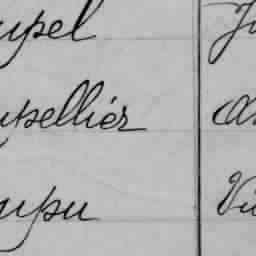 upel Ju
upellier A
upu Vi